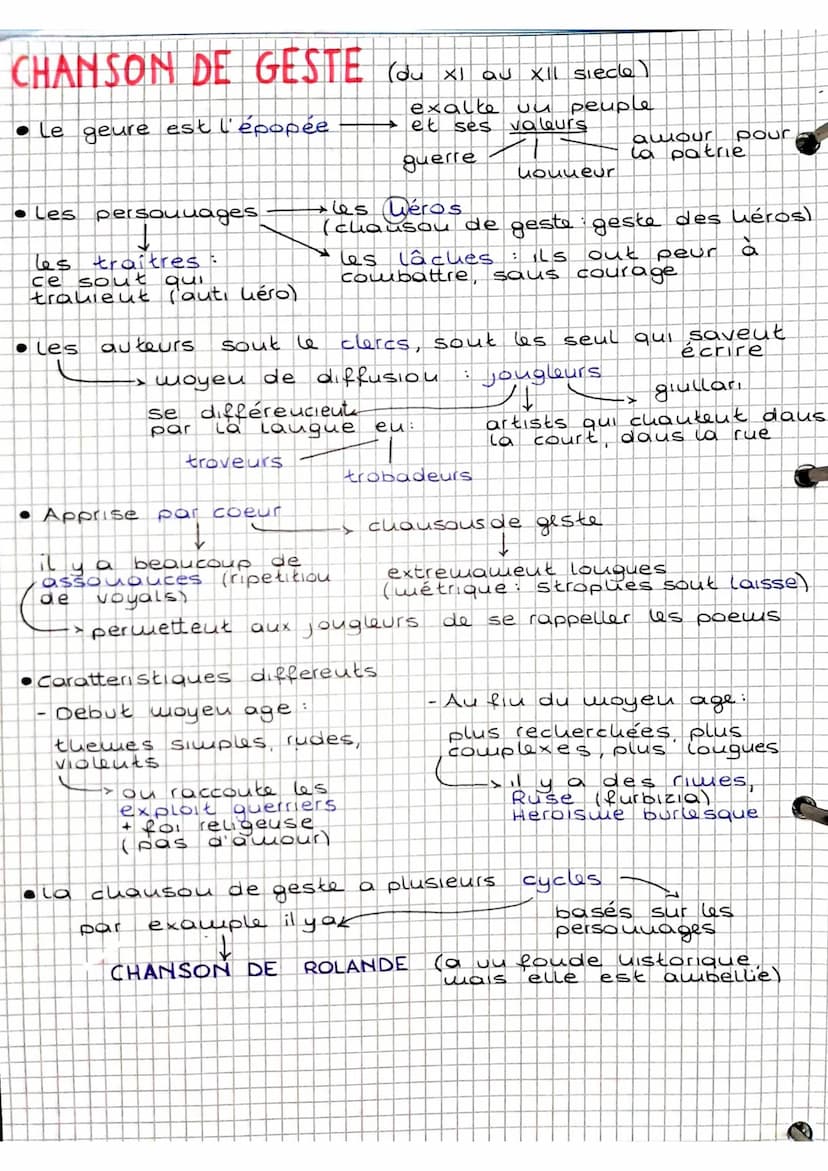 CHANSON DE GESTE (du XI au XII siecle)
• Le genre est l'épopée → exalte un peuple
et ses valeurs
guerre
honneur
amour pour
la patrie
• Les personnages → les Héros
(chanson de geste : geste des héros)
les traîtres :
ce sont qui
trahient (anti héro)
les lâches : ils ont peur à
combattre, sans courage
• Les auteurs sont le clercs, sont les seul qui savent
écrire
→ moyen de diffusion : jougleurs
→ giullari
se différencient
par la langue en:
artists qui chantent dans
la court, dans la rue
troveurs
trobadeurs
• Apprise par coeur → chansons de geste
il y a beaucoup de
assonances (ripetition
de voyals)
extremament longues
(métrique: strophes sont laisse)
→ permettent aux jougleurs de se rappeller les poems
• Caratteristiques differents
- Debut moyen age :
themes simples, rudes,
violents
→ on racconte les
exploit guerriers
+ foi religeuse
(pas d'amour)
- Au fin du moyen age:
plus recherchées, plus
complexes, plus longues
→ il y a des rimes,
Ruse (furbizia)
Heroisme burlesque
• La chanson de geste a plusieurs cycles
basés sur les
personnages
par example il ya
CHANSON DE ROLANDE (a un fonde historique,
mais elle est ambellie)